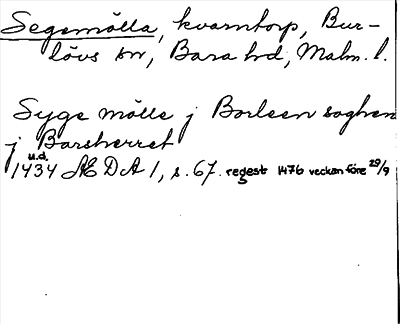 Segemölla, kvarntorp, Bur-
lövs sn, Bara hd, Malm. l.
Syge mölle j Borleen soghen
j Barsherret
u.d.
1434 ÆDA 1, s. 67. regest 1476 veckan före 29/9